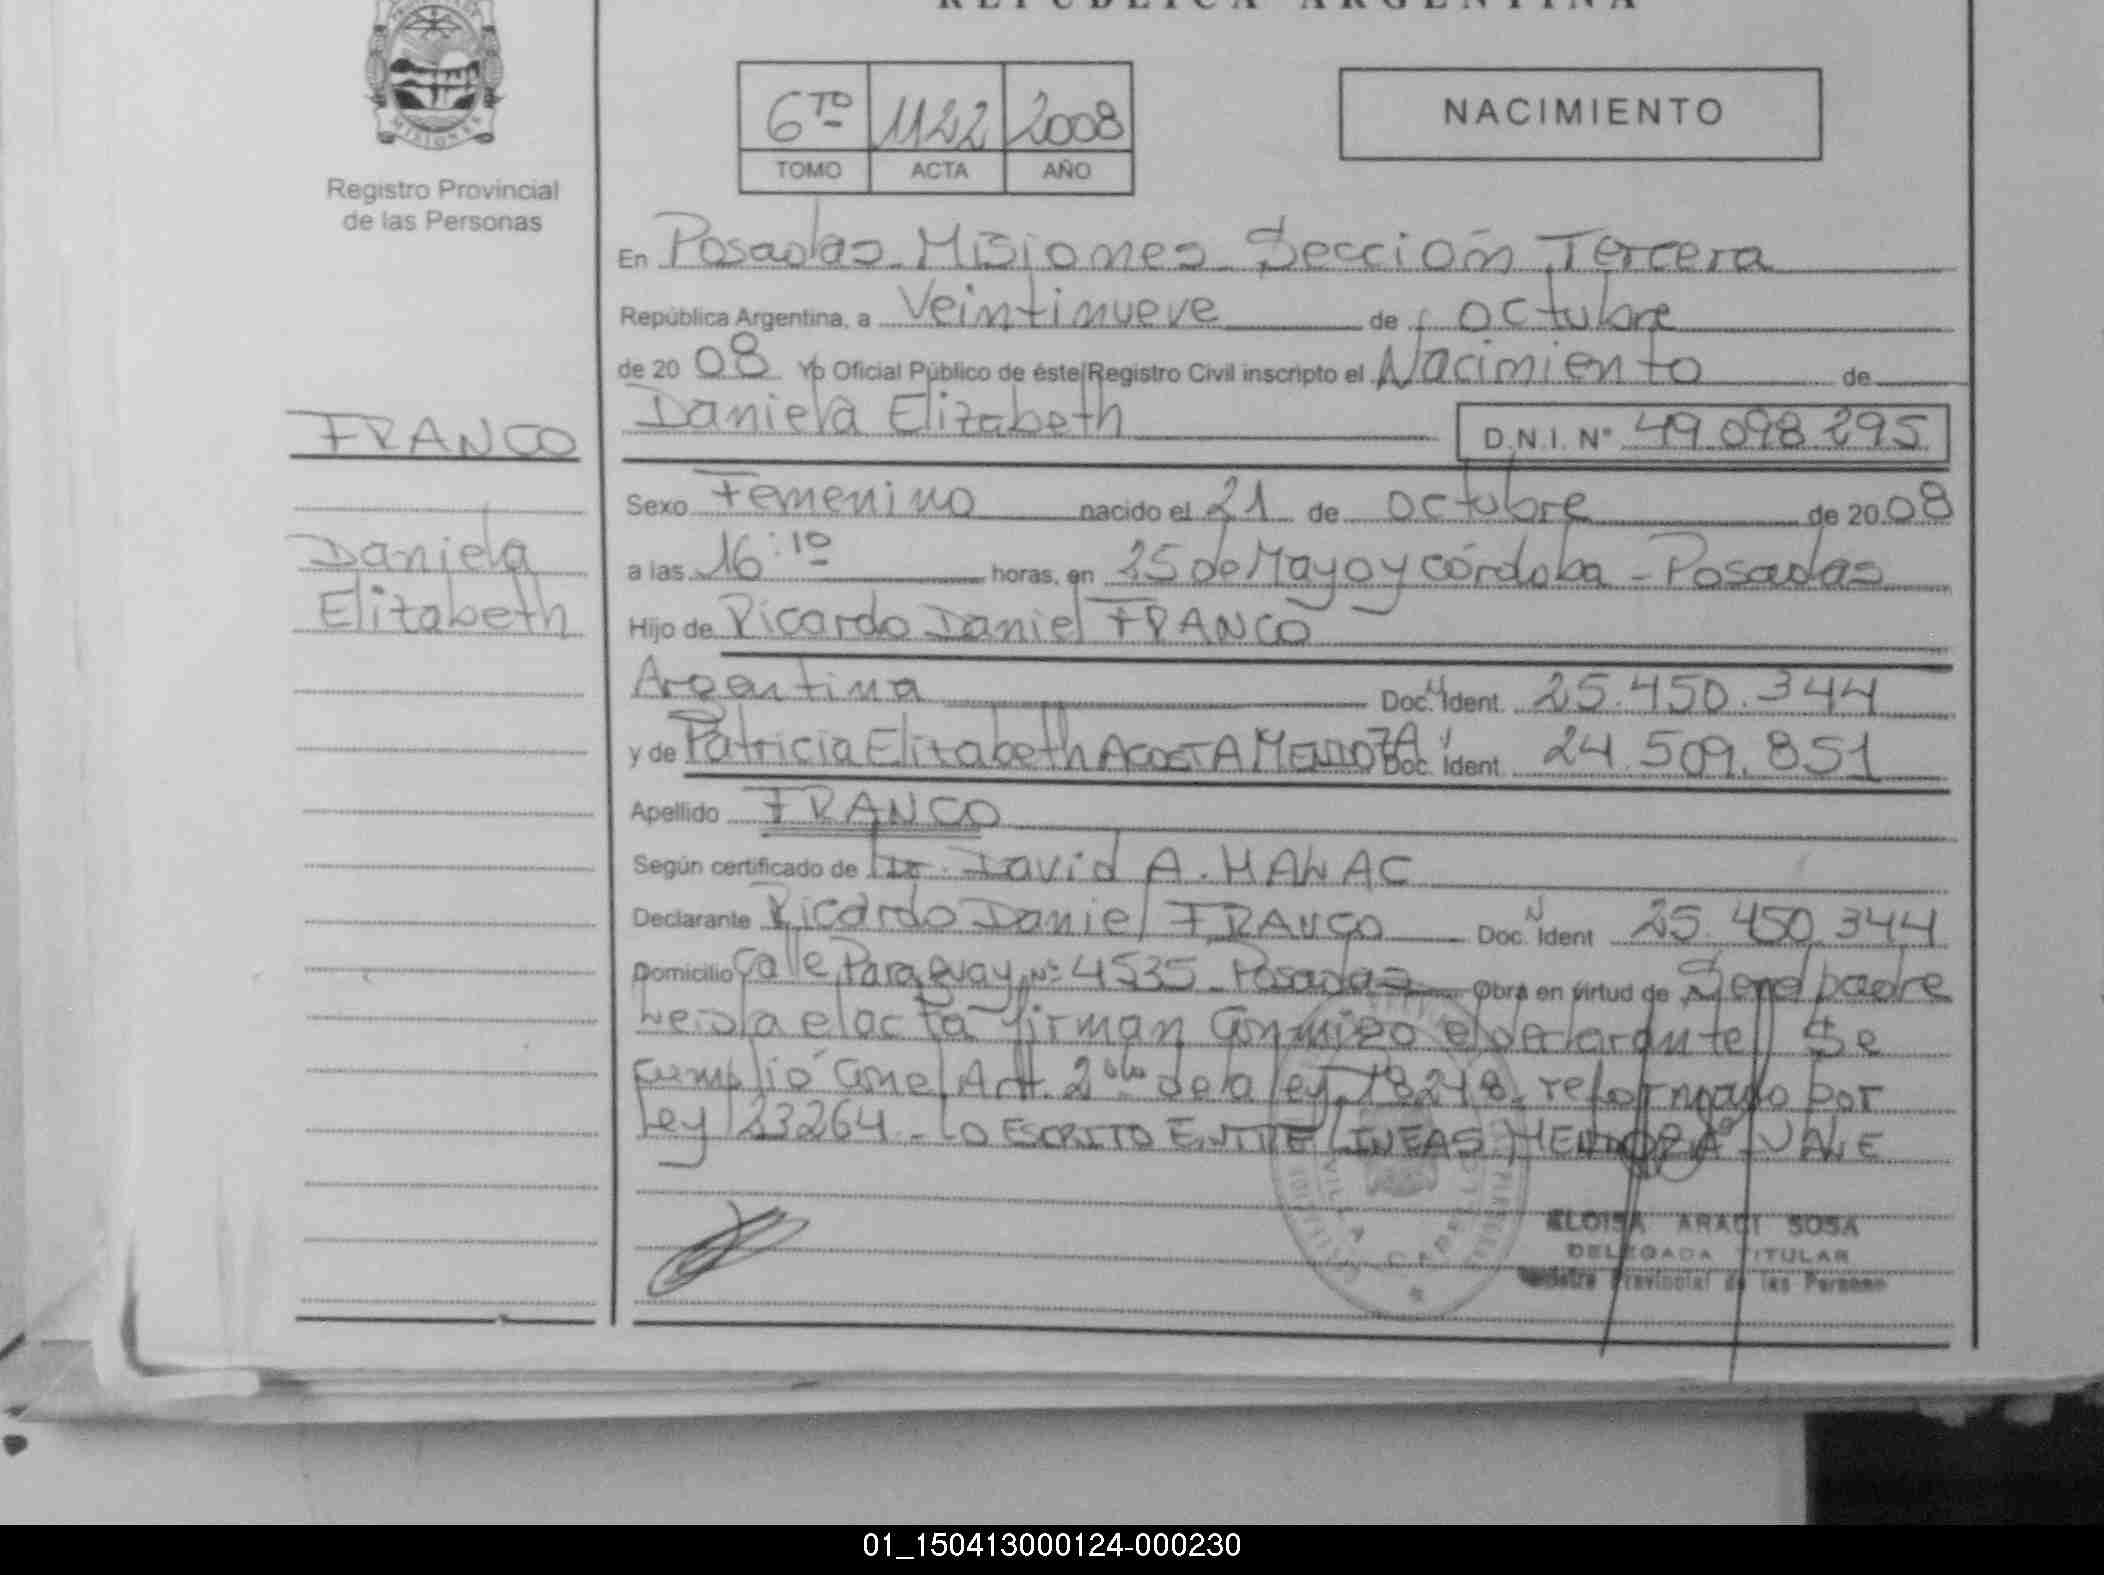 REPUBLICA ARGENTINA
MISIONES
Registro Provincial
de las Personas
6TO 1122 2008
TOMO ACTA AÑO
NACIMIENTO
En Posadas Misiones Sección Tercera
República Argentina, a Veintinueve de octubre
de 2008 Yo Oficial Público de éste Registro Civil inscripto el Nacimiento de
FRANCO
Daniela Elizabeth D.N.I. Nº 49.098.295
Sexo Femenino nacido el 21 de octubre de 2008
Daniela
a las 16:10 horas, en 25 de Mayo y córdoba - Posadas
Elizabeth
Hijo de Ricardo Daniel FRANCO
Argentina Doc. Ident. 25.450.344
y de Patricia Elizabeth ACOSTA MENDOZA Doc. Ident. 24.509.851
Apellido FRANCO
Según certificado de Dr. David A.
Declarante Ricardo Daniel FRANCO Doc. Ident 25.450.344
Domicilio Calle Paraguay Nº 4535 - Posadas Obra en virtud de Ser el padre
Leida el acta firman conmigo el declarante Se
cumplió con el Art. 2 de la ley 18248 reformado por
Ley 23264 - Lo ESCRITO ENTRE LINEAS: MENDOZA - VALE
ELOISA ARACI SOSA
DELEGADA TITULAR
Registro Provincial de las Personas
01_150413000124-000230